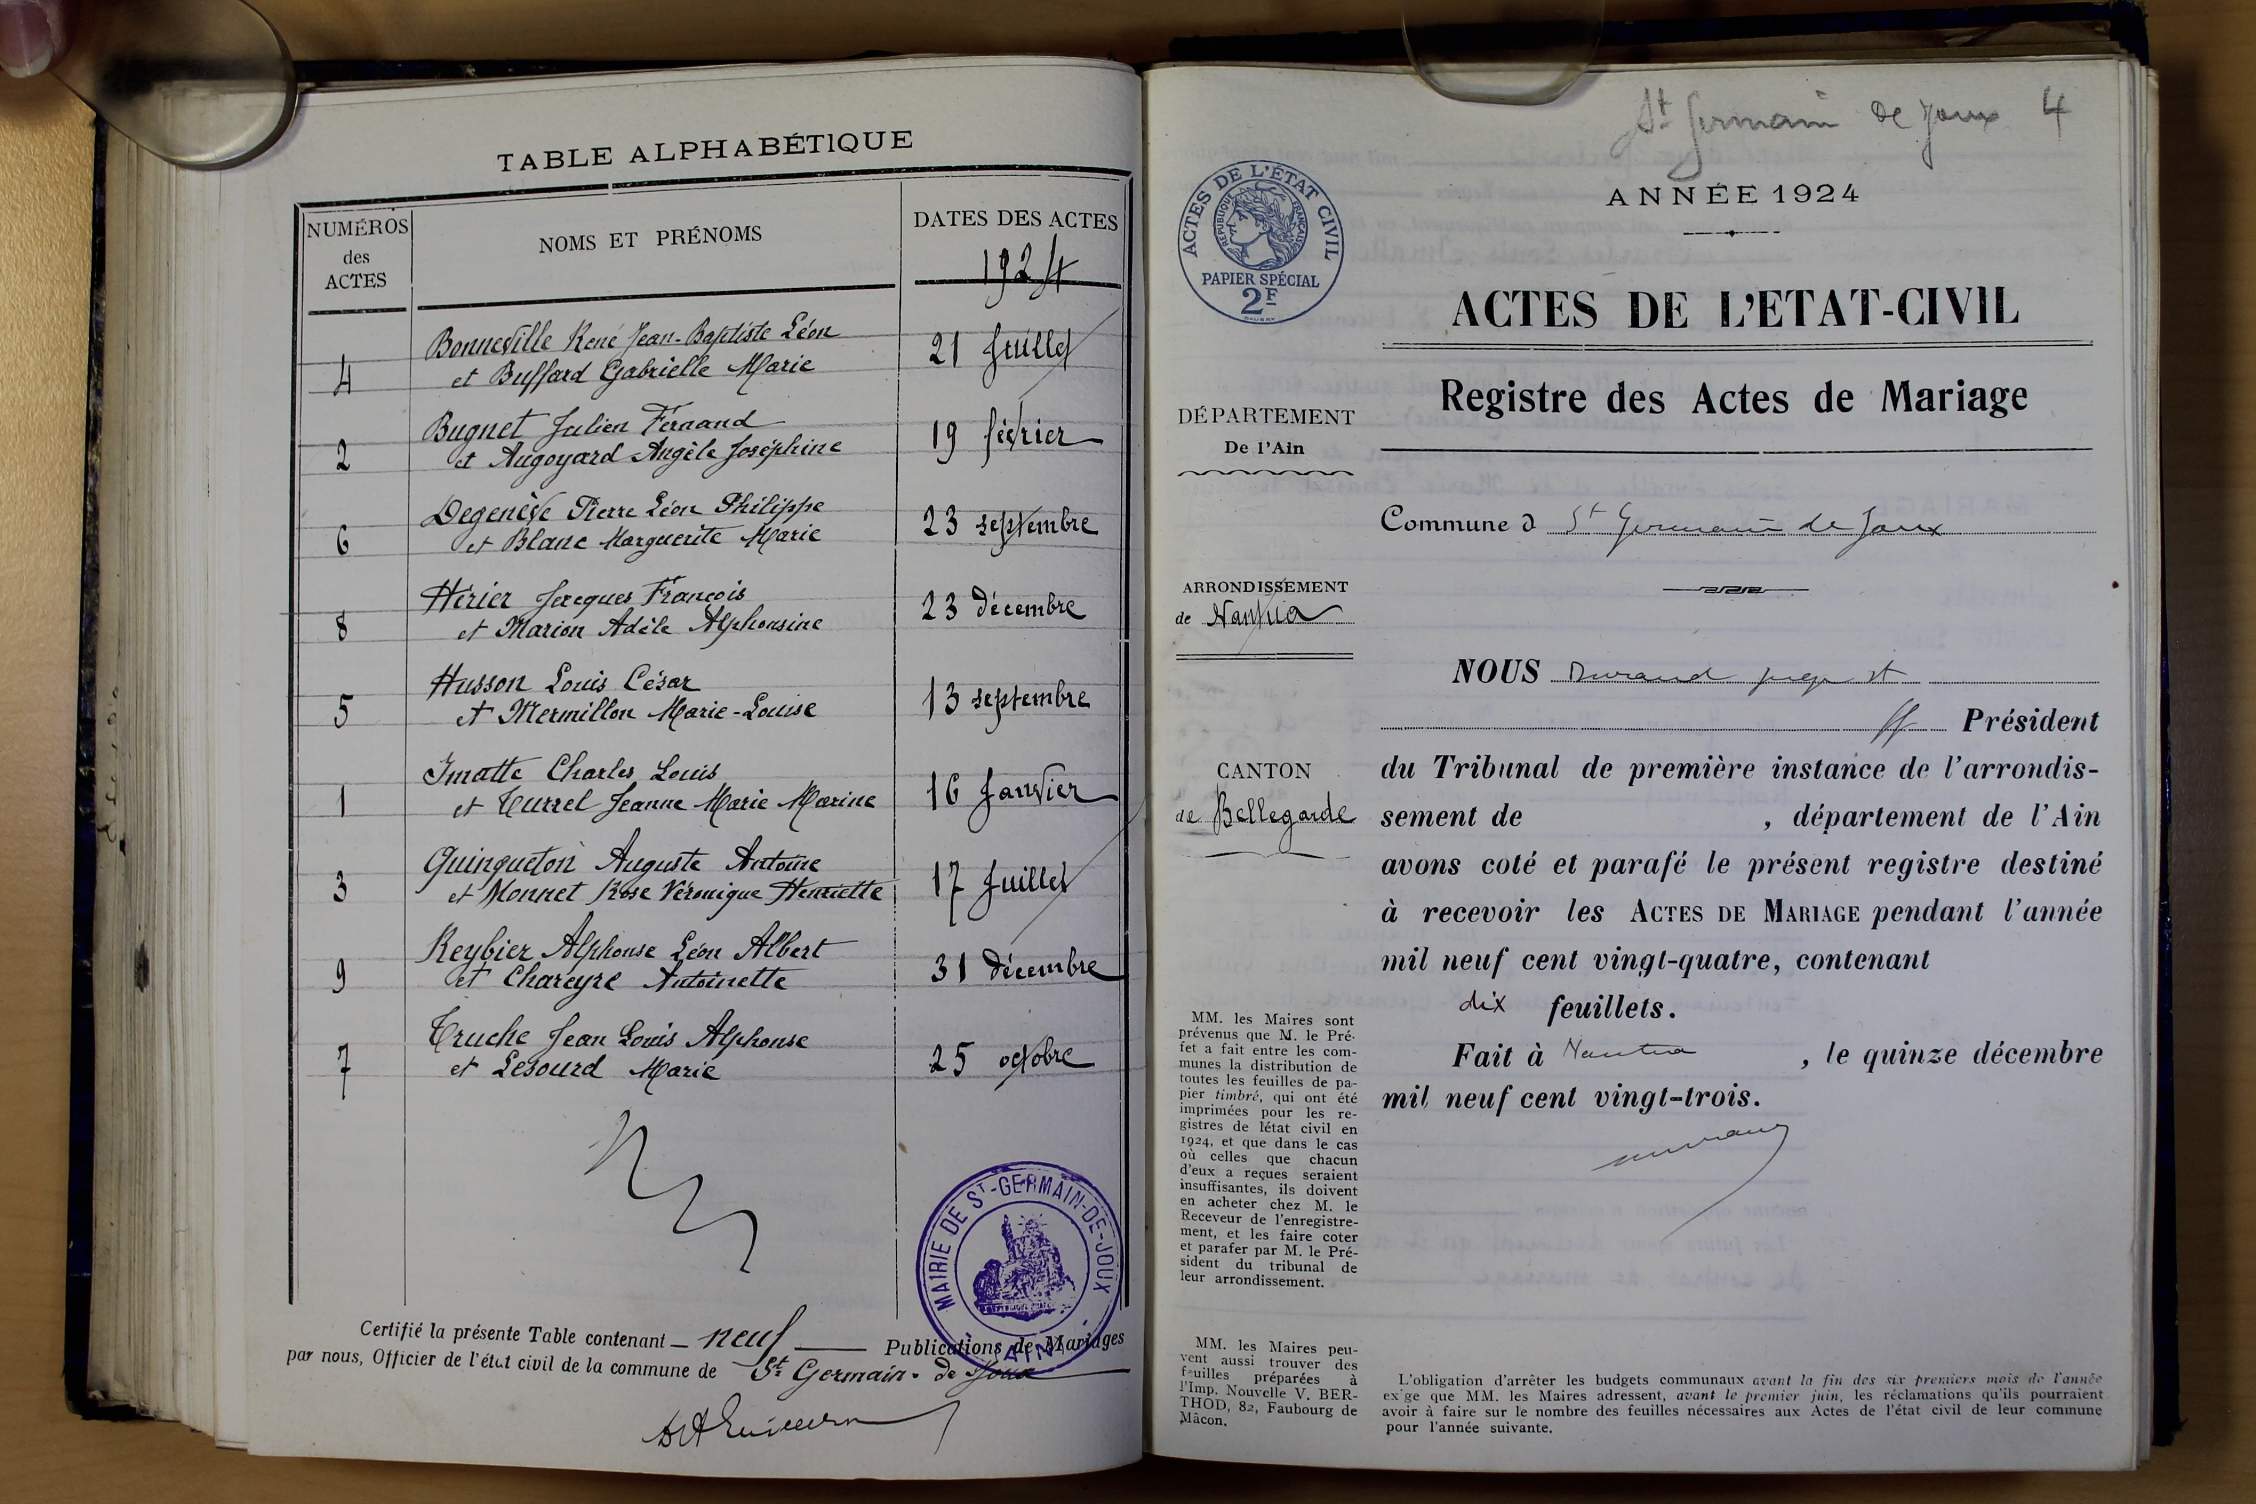 TABLE ALPHABÉTIQUE
NUMÉROS des ACTES
NOMS ET PRÉNOMS
DATES DES ACTES
1924
4 Bonneville René Jean-Baptiste Léon 21 Juillet
et Buffard Gabrielle Marie
2 Bugnet Julien Fernand 19 février
et Augoyard Angèle Joséphine
6 Degenève Pierre Léon Philippe 23 septembre
et Blanc Marguerite Marie
8 Hérier Jacques François 23 décembre
et Marion Adèle Alphonsine
5 Husson Louis César 13 septembre
et Mermillon Marie-Louise
1 Imatte Charles Louis 16 Janvier
et Turrel Jeanne Marie Marine
3 Quinqueton Auguste Antoine 17 Juillet
et Monnet Rose Véronique Henriette
9 Reybier Alphonse Léon Albert 31 décembre
et Chareyre Antoinette
7 Truche Jean Louis Alphonse 25 octobre
et Lesourd Marie
MAIRIE DE ST-GERMAIN-DE-JOUX
(AIN)
Certifié la présente Table contenant neuf Publications de Mariages
par nous, Officier de l'état civil de la commune de St Germain-de Joux
St Germain de Joux 4
ACTES DE L'ÉTAT CIVIL
RÉPUBLIQUE FRANÇAISE
PAPIER SPÉCIAL
2F
ANNÉE 1924
ACTES DE L'ETAT-CIVIL
Registre des Actes de Mariage
DÉPARTEMENT
De l'Ain
Commune d St Germain de Joux
ARRONDISSEMENT
de Nantua
CANTON
de Bellegarde
NOUS Durand juge st
ff Président
du Tribunal de première instance de l'arrondis-
sement de , département de l'Ain
avons coté et parafé le présent registre destiné
à recevoir les ACTES DE MARIAGE pendant l'année
mil neuf cent vingt-quatre, contenant
dix feuillets.
Fait à Nantua , le quinze décembre
mil neuf cent vingt-trois.
MM. les Maires sont
prévenus que M. le Pré-
fet a fait entre les com-
munes la distribution de
toutes les feuilles de pa-
pier timbré, qui ont été
imprimées pour les re-
gistres de létat civil en
1924, et que dans le cas
où celles que chacun
d'eux a reçues seraient
insuffisantes, ils doivent
en acheter chez M. le
Receveur de l'enregistre-
ment, et les faire coter
et parafer par M. le Pré-
sident du tribunal de
leur arrondissement.
MM. les Maires peu-
vent aussi trouver des
feuilles préparées à
l'Imp. Nouvelle V. BER-
THOD, 82, Faubourg de
Mâcon.
L'obligation d'arrêter les budgets communaux avant la fin des six premiers mois de l'année
exige que MM. les Maires adressent, avant le premier juin, les réclamations qu'ils pourraient
avoir à faire sur le nombre des feuilles nécessaires aux Actes de l'état civil de leur commune
pour l'année suivante.